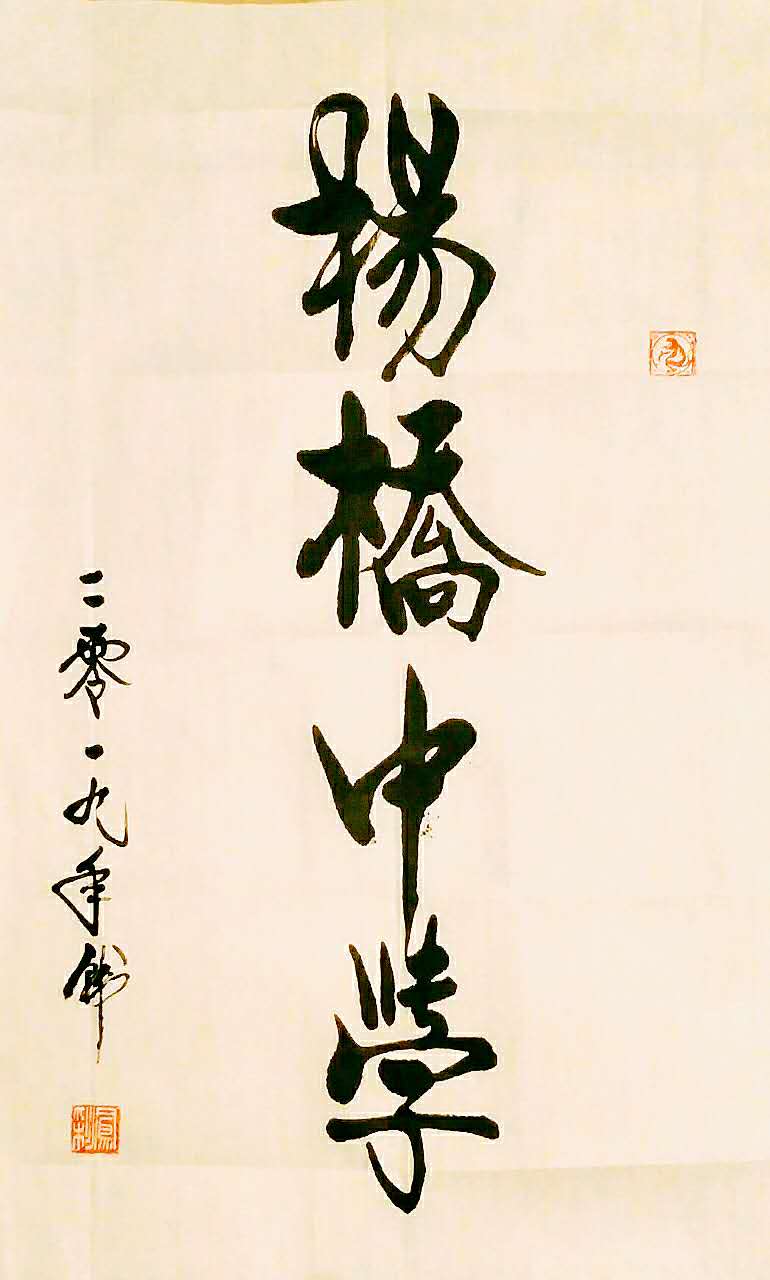 楊橋中學
二零一九年